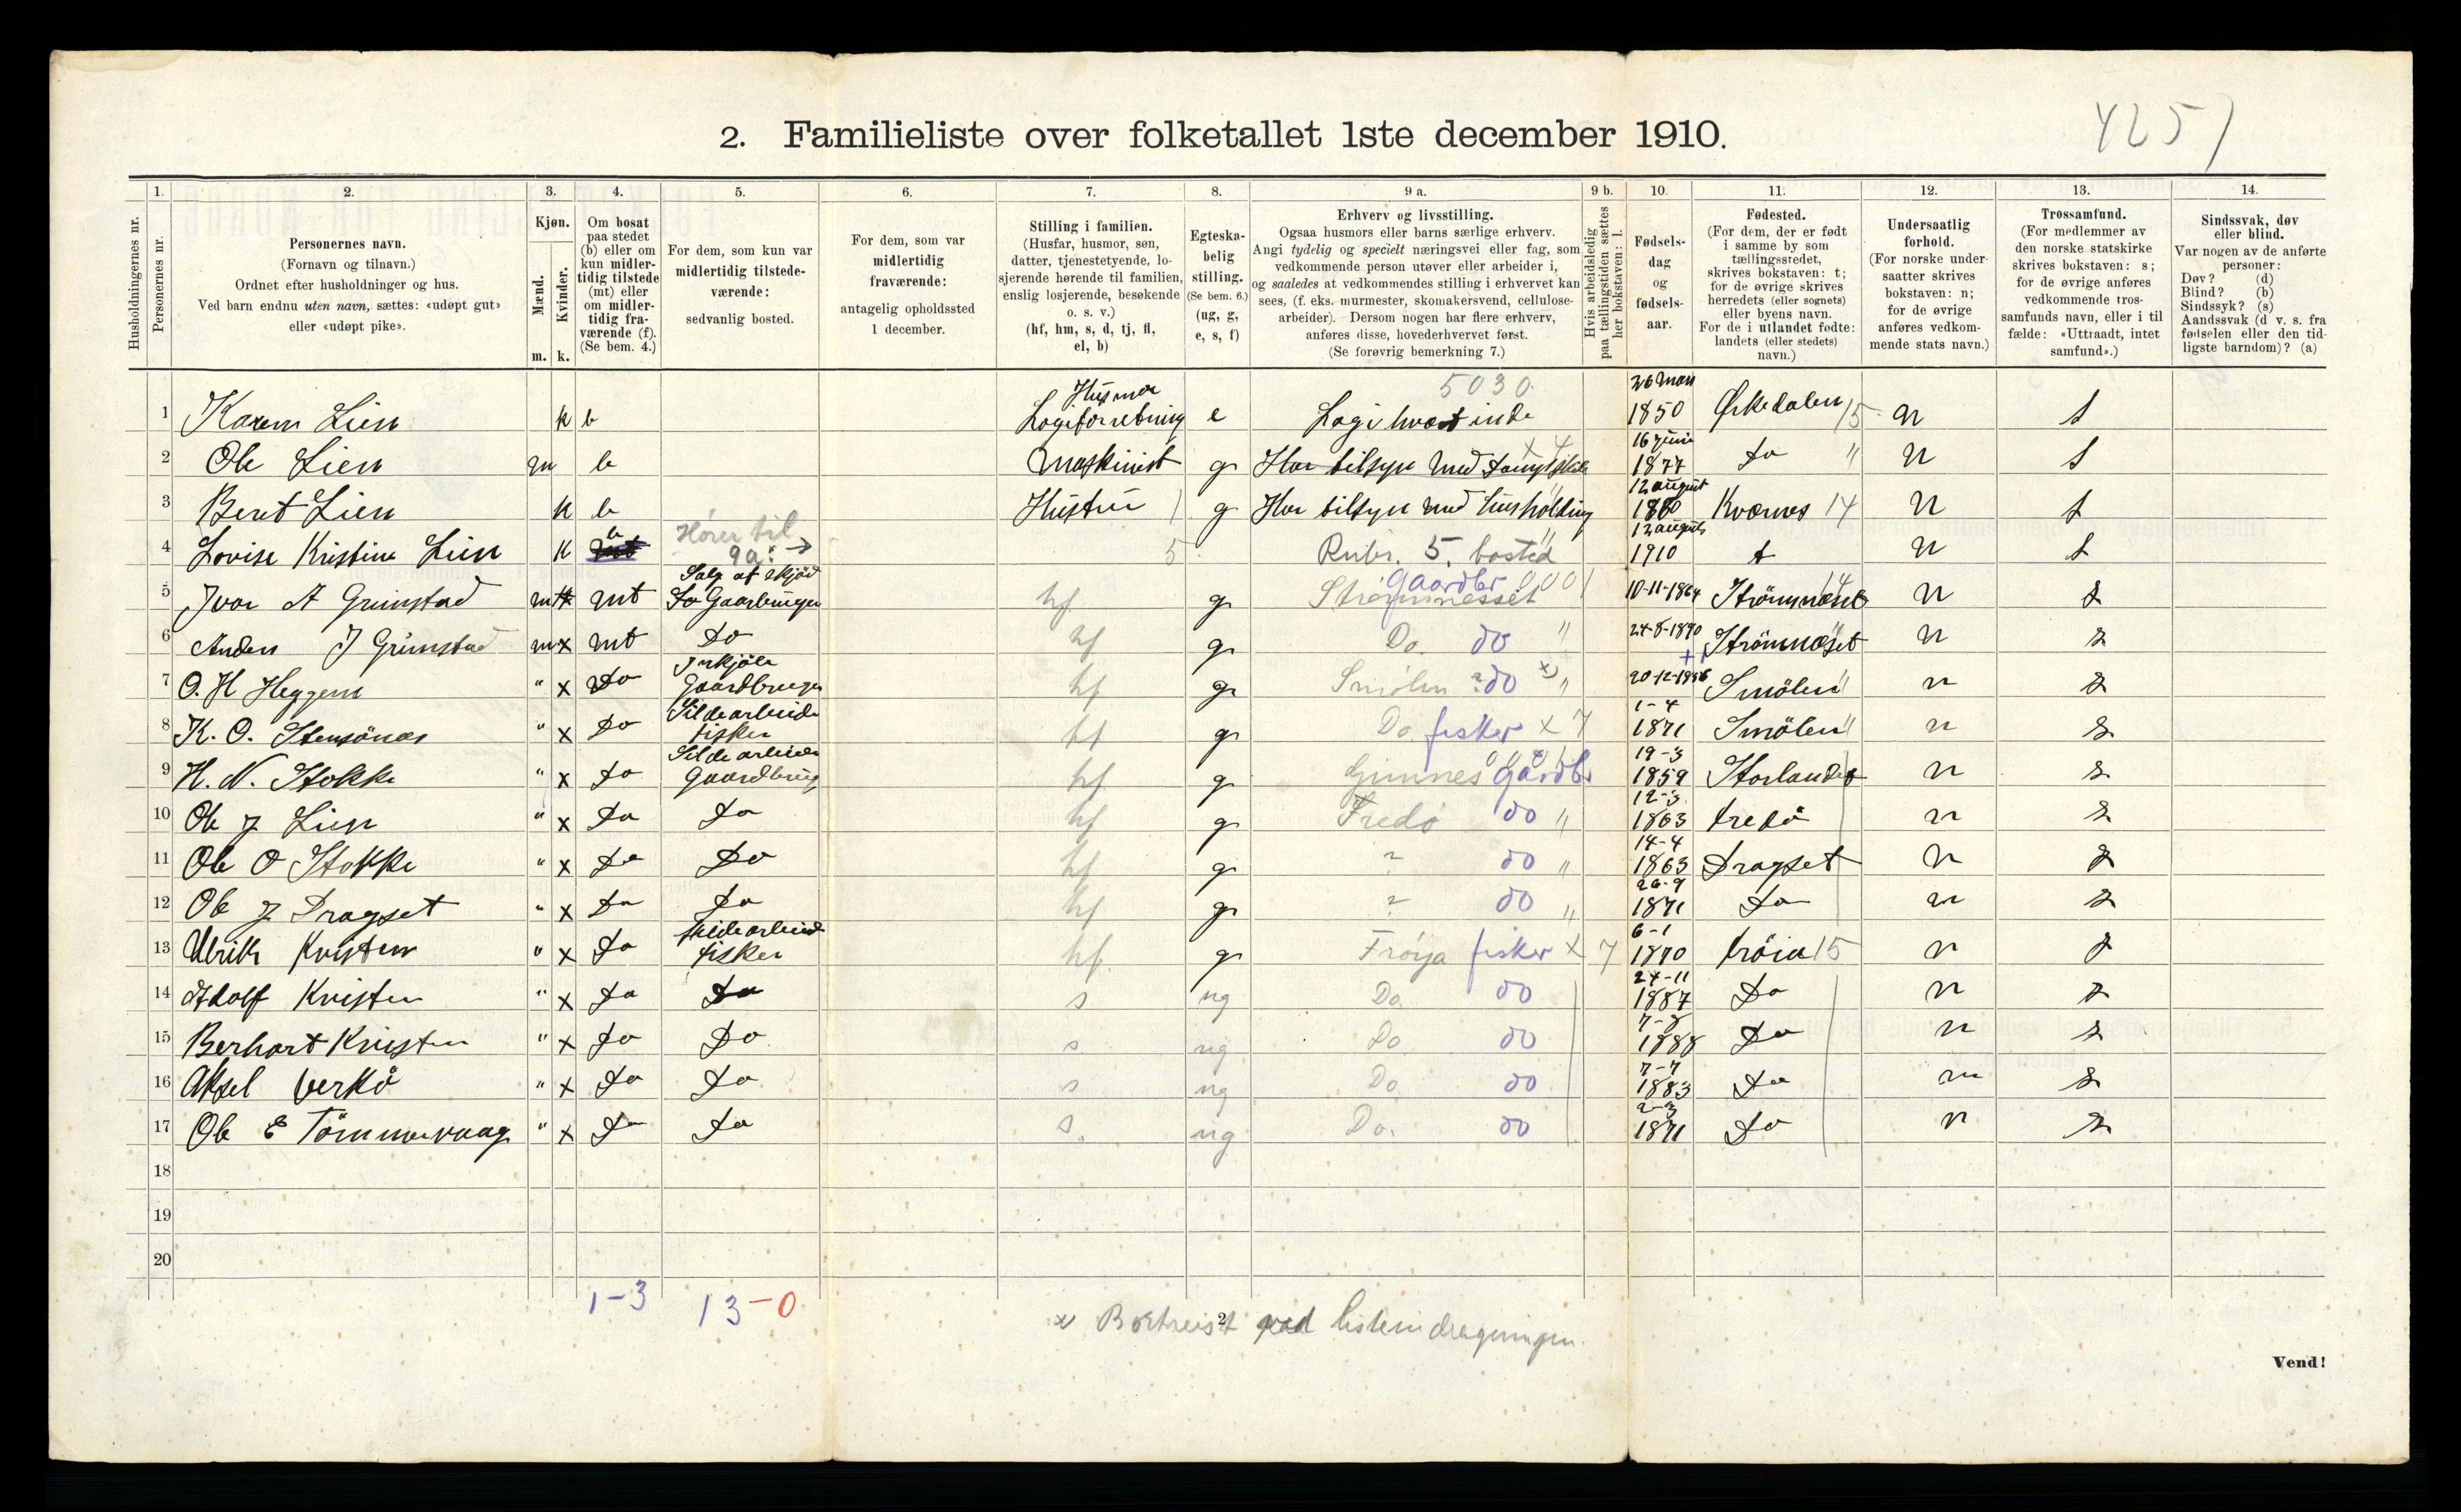 2. Familieliste over folketallet 1ste december 1910.
4257
1. 2. 3. 4. 5. 6. 7. 8. 9 a. 9 b. 10. 11. 12. 13. 14.
Husholdningernes nr.
Personernes nr.
Personernes navn.
(Fornavn og tilnavn.)
Ordnet efter husholdninger og hus.
Ved barn endnu uten navn, sættes: «udøpt gut»
eller «udøpt pike».
Kjøn.
Mænd.
Kvinder.
m. k.
Om bosat
paa stedet
(b) eller om
kun midler-
tidig tilstede
(mt) eller
om midler-
tidig fra-
værende (f).
(Se bem. 4.)
For dem, som kun var
midlertidig tilstede-
værende:
sedvanlig bosted.
For dem, som var
midlertidig
fraværende:
antagelig opholdssted
1 december.
Stilling i familien.
(Husfar, husmor, søn,
datter, tjenestetyende, lo-
sjerende hørende til familien,
enslig losjerende, besøkende
o. s. v.)
(hf, hm, s, d, tj, fl,
el, b)
Egteska-
belig
stilling.
(Se bem. 6.)
(ug, g,
e, s, f)
Erhverv og livsstilling.
Ogsaa husmors eller barns særlige erhverv.
Angi tydelig og specielt næringsvei eller fag, som
vedkommende person utøver eller arbeider i,
og saaledes at vedkommendes stilling i erhvervet kan
sees, (f. eks. murmester, skomakersvend, cellulose-
arbeider). Dersom nogen har flere erhverv,
anføres disse, hovederhvervet først.
(Se forøvrig bemerkning 7.)
Hvis arbeidsledig
paa tællingstiden sættes
her bokstaven: l.
Fødsels-
dag
og
fødsels-
aar.
Fødested.
(For dem, der er født
i samme by som
tællingsstedet,
skrives bokstaven: t;
for de øvrige skrives
herredets (eller sognets)
eller byens navn.
For de i utlandet fødte:
landets (eller stedets)
navn.)
Undersaatlig
forhold.
(For norske under-
saatter skrives
bokstaven: n;
for de øvrige
anføres vedkom-
mende stats navn.)
Trossamfund.
(For medlemmer av
den norske statskirke
skrives bokstaven: s;
for de øvrige anføres
vedkommende tros-
samfunds navn, eller i til-
fælde: «Uttraadt, intet
samfund».)
Sindssvak, døv
eller blind.
Var nogen av de anførte
personer:
Døv? (d)
Blind? (b)
Sindssyk? (s)
Aandssvak (d. v. s. fra
fødselen eller den tid-
ligste barndom)? (a)
5030
1 Karen Lien k b Husmor Logiforretning e Logivertinde 26 mars 1850 Ørkedalen 15 n s
2 Ole Lien m b Maskinist g Har tilsyn med x 4 16 juni 1877 Do " n s
3 Beret Lien k b Hustru g Har tilsyn med husholdning 12 august 1880 Kvernes 14 n s
4 Lovise Kristine Lien k b Hører til 9a: → 5 Rubr. 5. bosted 12 august 1910 t n s
5 Ivar A Grimstad m mt Salg af Do Gaarbruger hf g Strømnesset Gaardbr 0001 10-11-1864 Strömneset 14 n s
6 Anders J Grimstad m x mt Do hf g Do. do " 24-8-1890 Strömneset n s
7 O. H Heggem " x Do Gaardbruger hf g Smølen ? do x) " 20-12-1856 Smölen n s
8 K. O. Stensönes " x Do Sildearbeide fisker hf g Do fisker x 7 1-4 1871 Smölen " n s
9 H. N. Stokke " x Do Sildearbeide Gaardbrug hf g Gimnes Gardbr 19-3 1859 Storlandet n s
10 Ole J Lien " x Do Do hf g Fredö do " 12-3 1863 fredö n s
11 Ole O Stokke " x Do Do hf g ? do " 14-4 1863 Dragset n s
12 Ole J Dragset " x Do Do hf g ? do " 26-9 1871 Do n s
13 Ulrik Kvisten " x Do sildearbeid fisker hf. g Frøya fisker x 7 6-1 1870 fröia 15 n s
14 Adolf Kvisten " x Do Do s ug Do. do 24-11 1887 Do n s
15 Berhart Kvisten " x Do Do s ug Do do 7-8 1888 Do n s
16 Aksel Verkö " x Do Do s ug Do. do 7-7 1883 Do n s
17 Ole E Tömmervaag " x Do Do s. ug Do. do 2-3 1871 Do n s
18
19
20
1-3 13-0
2
x Bortreist ved listeinddragningen.
Vend!